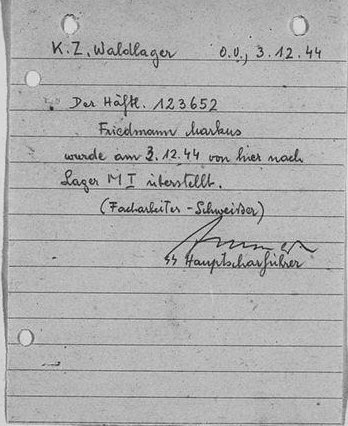 K.Z. Waldlager O.U., 3.12.44
Der Häftl. 123652
Friedmann Markus
wurde am 3.12.44 von hier nach
Lager M I überstellt.
(Facharbeiter-Schweißer)
SS Hauptscharführer